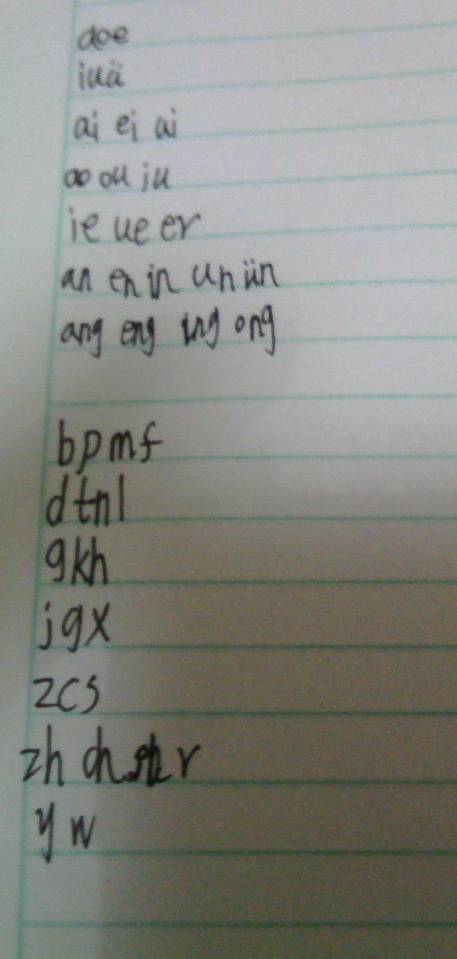 aoe
iuü
ai ei ui
ao ou iu
ie ue er
an en in un ün
ang eng ing ong
bpmf
dtnl
gkh
jqx
zcs
zh ch sh r
y w